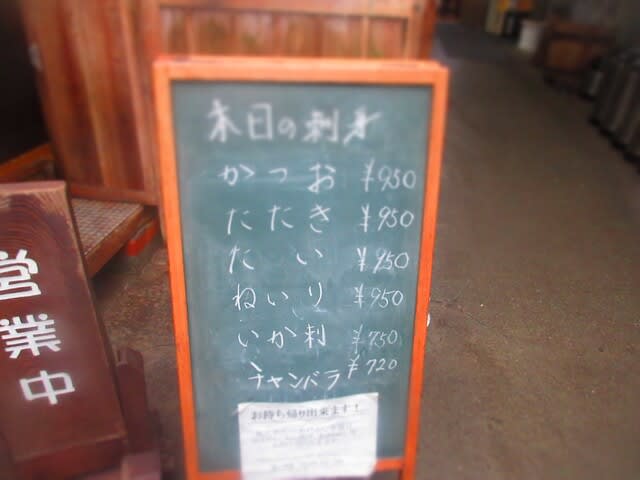 本日の刺身
かつお ¥950
たたき ¥950
たい ¥950
ねいり ¥950
いか刺 ¥750
チャンバラ ¥720
お持ち帰り出来ます!
営業中